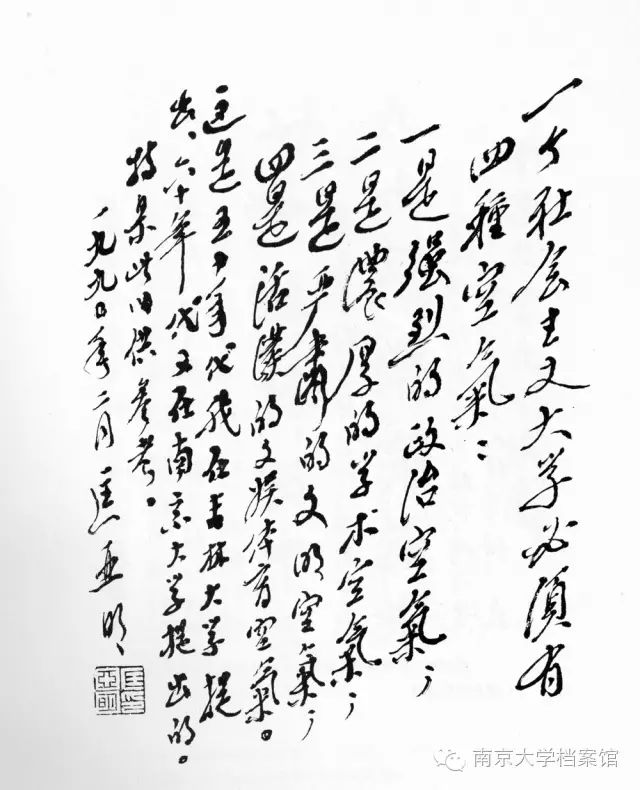 一个社会主义大学必须有
四種空氣：
一是强烈的政治空氣；
二是濃厚的学术空氣；
三是严肃的文明空氣；
四是活潑的文娱体育空氣。
这是五十年代我在吉林大学提
出、六十年代又在南京大学提出的。
特录此以供参考。
一九九〇年二月 匡亚明
南京大学档案馆